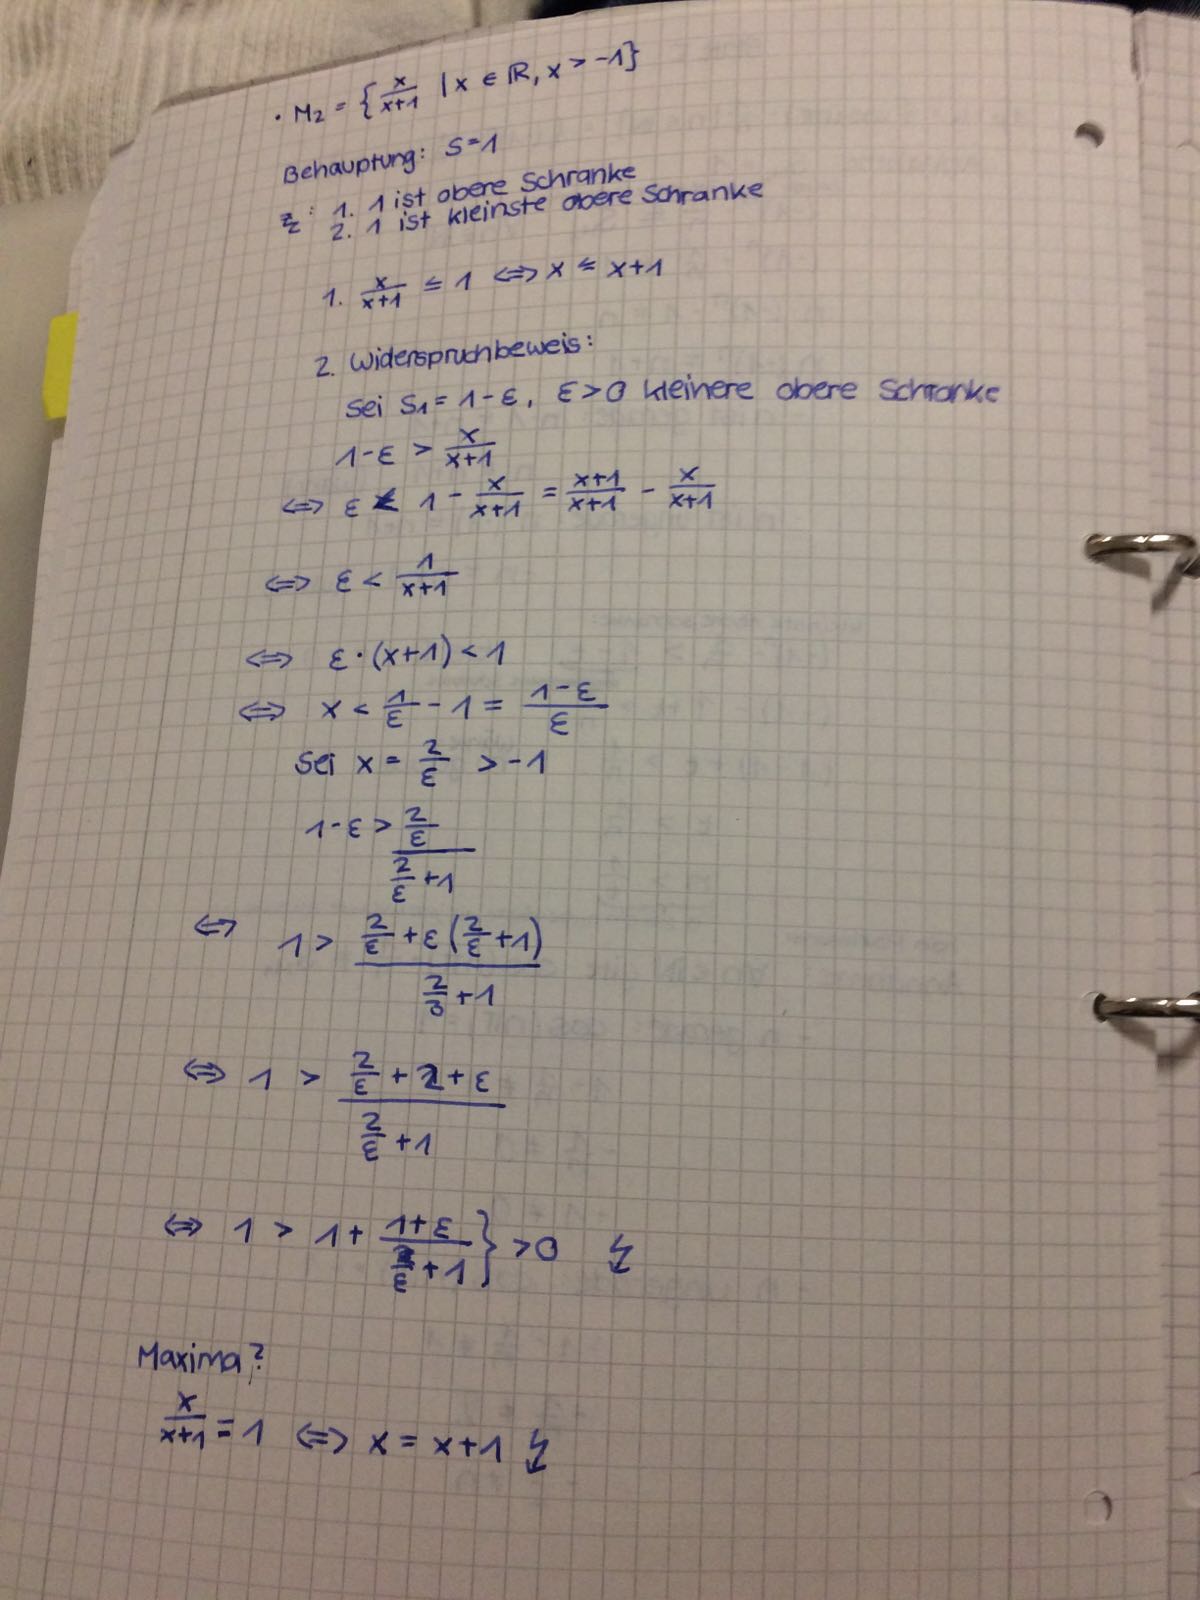 • M₂ = { x/(x+1) | x ∈ ℝ, x > -1}
Behauptung: S=1
Zz: 1. 1 ist obere Schranke
2. 1 ist kleinste obere Schranke
1. x/(x+1) ≤ 1 ⇔ x ≤ x+1
2. Widerspruchbeweis:
Sei S₁ = 1-ε, ε>0 kleinere obere Schranke
1-ε > x/(x+1)
⇔ ε < 1 - x/(x+1) = (x+1)/(x+1) - x/(x+1)
⇔ ε < 1/(x+1)
⇔ ε·(x+1) < 1
⇔ x < 1/ε - 1 = (1-ε)/ε
Sei x = 2/ε > -1
1-ε > (2/ε)/(2/ε +1)
⇔ 1 > (2/ε + ε(2/ε +1))/(2/3 +1)
⇔ 1 > (2/ε + 2 + ε)/(2/ε +1)
⇔ 1 > 1 + (1+ε)/(2/ε +1) } >0 ↯
Maxima?
x/(x+1) = 1 ⇔ x = x+1 ↯